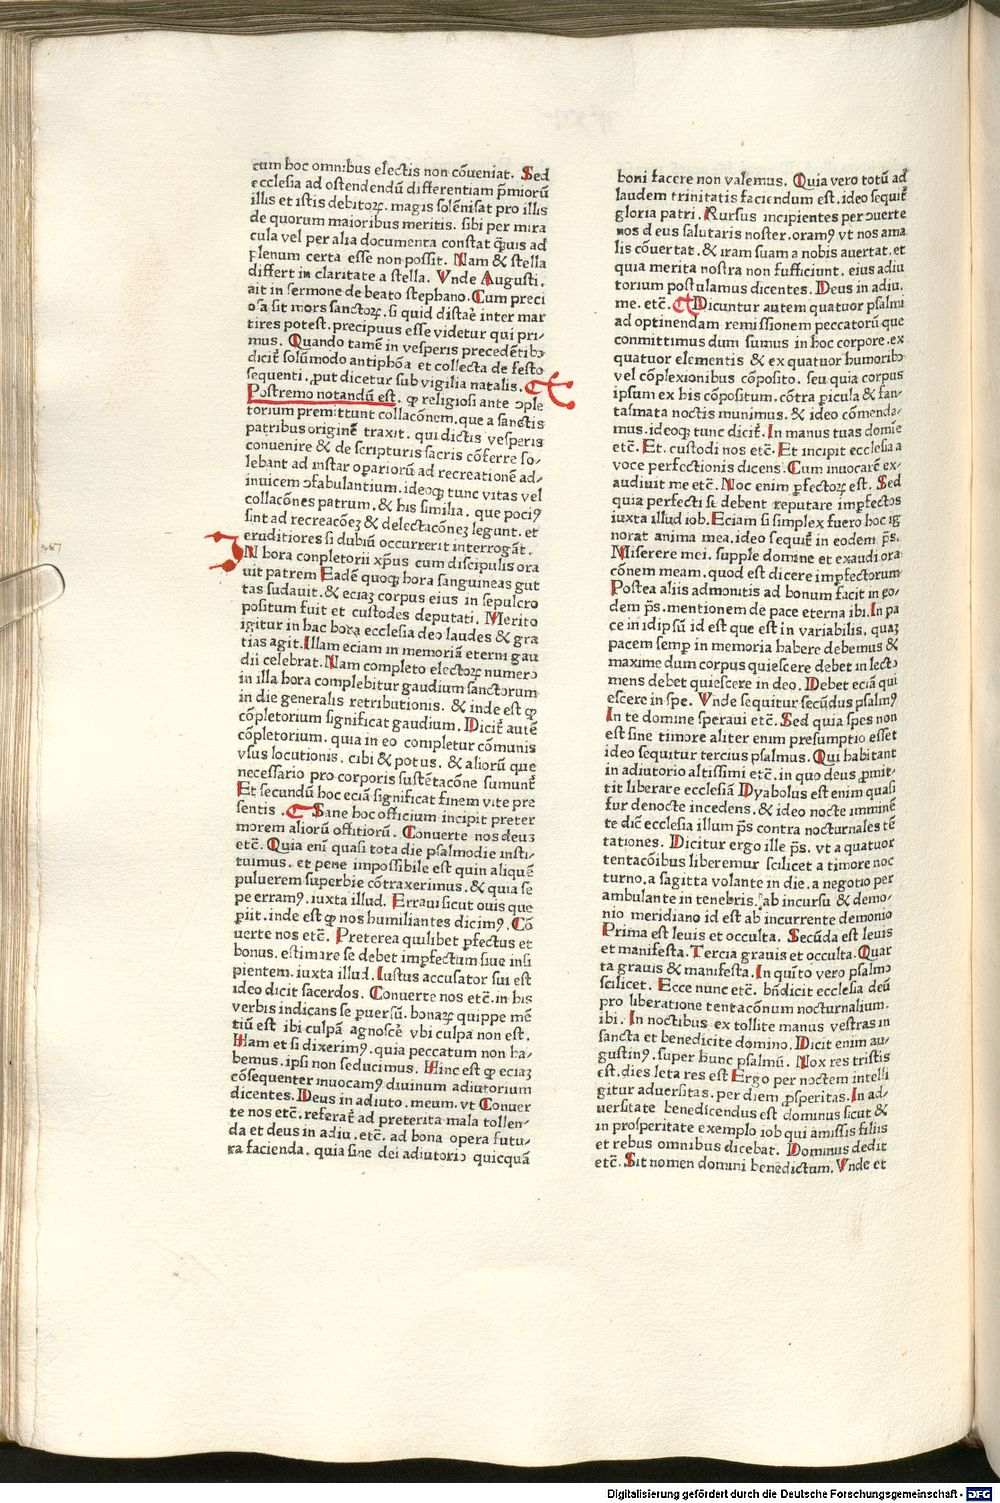 cum hoc omnibus electis non cōueniat. Sed
ecclesia ad ostendendū differentiam p̄miorū
illis et istis debitoꝝ. magis solēnisat pro illis
de quorum maioribus meritis. sibi per mira
cula vel per alia documenta constat q̄uis ad
plenum certa esse non possit. Nam & stella
differt in claritate a stella. Vnde Augusti.
ait in sermone de beato stephano. Cum preci
osa sit mors sanctoꝝ. si quid distaē inter mar
tires potest. precipuus esse videtur qui pri/
mus. Quando tamē in vesperis precedētibꝫ
dicit̄ solūmodo antiphōa et collecta de festo
sequenti. ꝓut dicetur sub vigilia natalis.
Postremo notandū est. ꝙ religiosi ante ꝯple
torium premittunt collacōnem. que a sanctis
patribus originē traxit. qui dictis vesperis
conuenire & de scripturis sacris cōferre so/
lebant ad instar oꝑariorū ad recreationē ad/
inuicem ꝯfabulantium. ideoqꝫ tunc vitas vel
collacōnes patrum. & his similia. que pociꝰ
sint ad recreacōeꝫ & delectacōneꝫ legunt. et
eruditiores si dubiū occurrerit interrogāt.
IN hora conpletorii xp̄us cum discipulis ora
uit patrem Eadē quoqꝫ hora sanguineas gut
tas sudauit. & eciaꝫ corpus eius in sepulcro
positum fuit et custodes deputati. Merito
igitur in hac hora ecclesia deo laudes & gra
tias agit. Illam eciam in memoriā eterni gau
dii celebrat. Nam completo electoꝝ numero
in illa hora complebitur gaudium sanctorum
in die generalis retributionis. & inde est ꝙ
cōpletorium significat gaudium. Dicit̄ autē
cōpletorium. quia in eo completur cōmunis
vsus locutionis. cibi & potus. & aliorū que
necessario pro corporis sustētacōne sumunt̄
Et secundū hoc eciā significat finem vite pre
sentis. Sane hoc officium incipit preter
morem aliorū offitiorū. Conuerte nos deus
etc̄. Quia eni quasi tota die psalmodie insti/
tuimus. et pene impossibile est quin aliquē
puluerem superbie cōtraxerimus. & quia se
pe erramꝰ. iuxta illud. Erraui sicut ouis que
ꝑiit. inde est ꝙ nos humiliantes dicimꝰ. Cō
uerte nos etc̄. Preterea quilibet ꝑfectus et
bonus. estimare se debet imꝑfectum siue insi
pientem. iuxta illud. Iustus accusator sui est
ideo dicit sacerdos. Conuerte nos etc̄. in his
verbis indicans se ꝑuersū. bonaꝝ quippe mē
tiū est ibi culpā agnoscē vbi culpa non est.
Nam et si dixerimꝰ. quia peccatum non ha/
bemus. ipsi nos seducimus. Hinc est ꝙ eciaꝫ
cōsequenter inuocamꝰ diuinum adiutorium
dicentes. Deus in adiuto. meum. vt Conuer
te nos etc̄. referat̄ ad preterita mala tollen/
da et deus in adiu. etc̄. ad bona opera futu/
ra facienda. quia sine dei adiutorio quicquā
boni facere non valemus. Quia vero totū ad
laudem trinitatis faciendum est. ideo sequit̄
gloria patri. Rursus incipientes per ꝯuerte
nos deus salutaris noster. oramꝰ vt nos ama
lis cōuertat. & iram suam a nobis auertat. et
quia merita nostra non sufficiunt. eius adiu
torium postulamus dicentes. Deus in adiu.
me. etc̄. Dicuntur autem quatuor psalmi
ad optinendam remissionem peccatorū que
conmittimus dum sumus in hoc corpore. ex
quatuor elementis & ex quatuor humoribꝫ
vel cōplexionibus cōposito. seu quia corpus
ipsum ex his cōpositum. cōtra ꝑicula & fan/
tasmata noctis munimus. & ideo cōmenda/
mus. ideoqꝫ tunc dicit̄. In manus tuas domīe
etc̄. Et. custodi nos etc̄. Et incipit ecclesia a
voce perfectionis dicens. Cum inuocarē ex/
audiuit me etc̄. Hoc enim ꝑfectoꝝ est. Sed
quia perfecti se debent reputare imꝑfectos
iuxta illud iob. Eciam si simplex fuero hoc ig
norat anima mea. ideo sequit̄ in eodem ps̄.
Miserere mei. supple domine et exaudi ora
cōnem meam. quod est dicere imꝑfectorum
Postea aliis admonitis ad bonum facit in eo/
dem ps̄. mentionem de pace eterna ibi. In pa
ce in idipsū id est que est in variabilis. quaꝫ
pacem semꝑ in memoria habere debemus &
maxime dum corpus quiescere debet in lecto
mens debet quiescere in deo. Debet eciā qui
escere in spe. Vnde sequitur secūdus psalmꝰ
In te domine speraui etc̄. Sed quia spes non
est sine timore aliter enim presumptio esset
ideo sequitur tercius psalmus. Qui habitant
in adiutorio altissimi etc̄. in quo deus ꝓmit/
tit liberare ecclesiā Dyabolus est enim quasi
fur denocte incedens. & ideo nocte imminē
te dic̄ ecclesia illum ps̄ contra nocturnales tē
tationes. Dicitur ergo ille ps̄. vt a quatuor
tentacōibus liberemur scilicet a timore noc
turno. a sagitta volante in die. a negotio per
ambulante in tenebris. ab incursu & demo/
nio meridiano id est ab incurrente demonio
Prima est leuis et occulta. Secūda est leuis
et manifesta. Tercia grauis et occulta. Quar
ta grauis & manifesta. In quīto vero psalmo
scilicet. Ecce nunc etc̄. bn̄dicit ecclesia deū
pro liberatione tentacōnum nocturnalium.
ibi. In noctibus extollite manus vestras in
sancta et benedicite domino. Dicit enim au/
gustinꝰ. super hunc psalmū. Nox res tristis
est. dies leta res est Ergo per noctem intelli
gitur aduersitas. per diem ꝓsperitas. In ad/
uersitate benedicendus est dominus sicut &
in prosperitate exemplo iob qui amissis filiis
et rebus omnibus dicebat. Dominus dedit
etc̄. Sit nomen domini benedictum. Vnde et
Digitalisierung gefördert durch die Deutsche Forschungsgemeinschaft - DFG